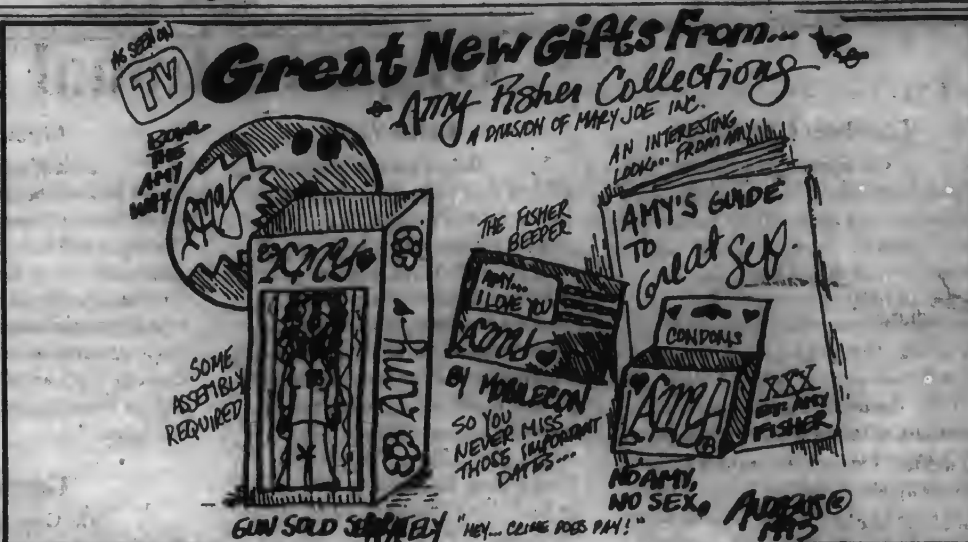 AS SEEN ON
TV
Great New Gifts From...
Amy Fisher Collections
A DIVISION OF MARY JOE INC.
BOWL
THE
AMY
WAY
Amy
AMY
AMY
SOME
ASSEMBLY
REQUIRED
GUN SOLD SEPARATELY
"HEY... CRIME DOES PAY!"
THE FISHER
BEEPER
AMY...
I LOVE YOU
Amy
BY MOBILECON
SO YOU
NEVER MISS
THOSE IMPORTANT
DATES...
AN INTERESTING
LOOK... FROM AMY
AMY'S GUIDE
TO
Great Sex.
CONDOMS
AMY
XXX
AMY
FISHER
NO AMY,
NO SEX.
1993